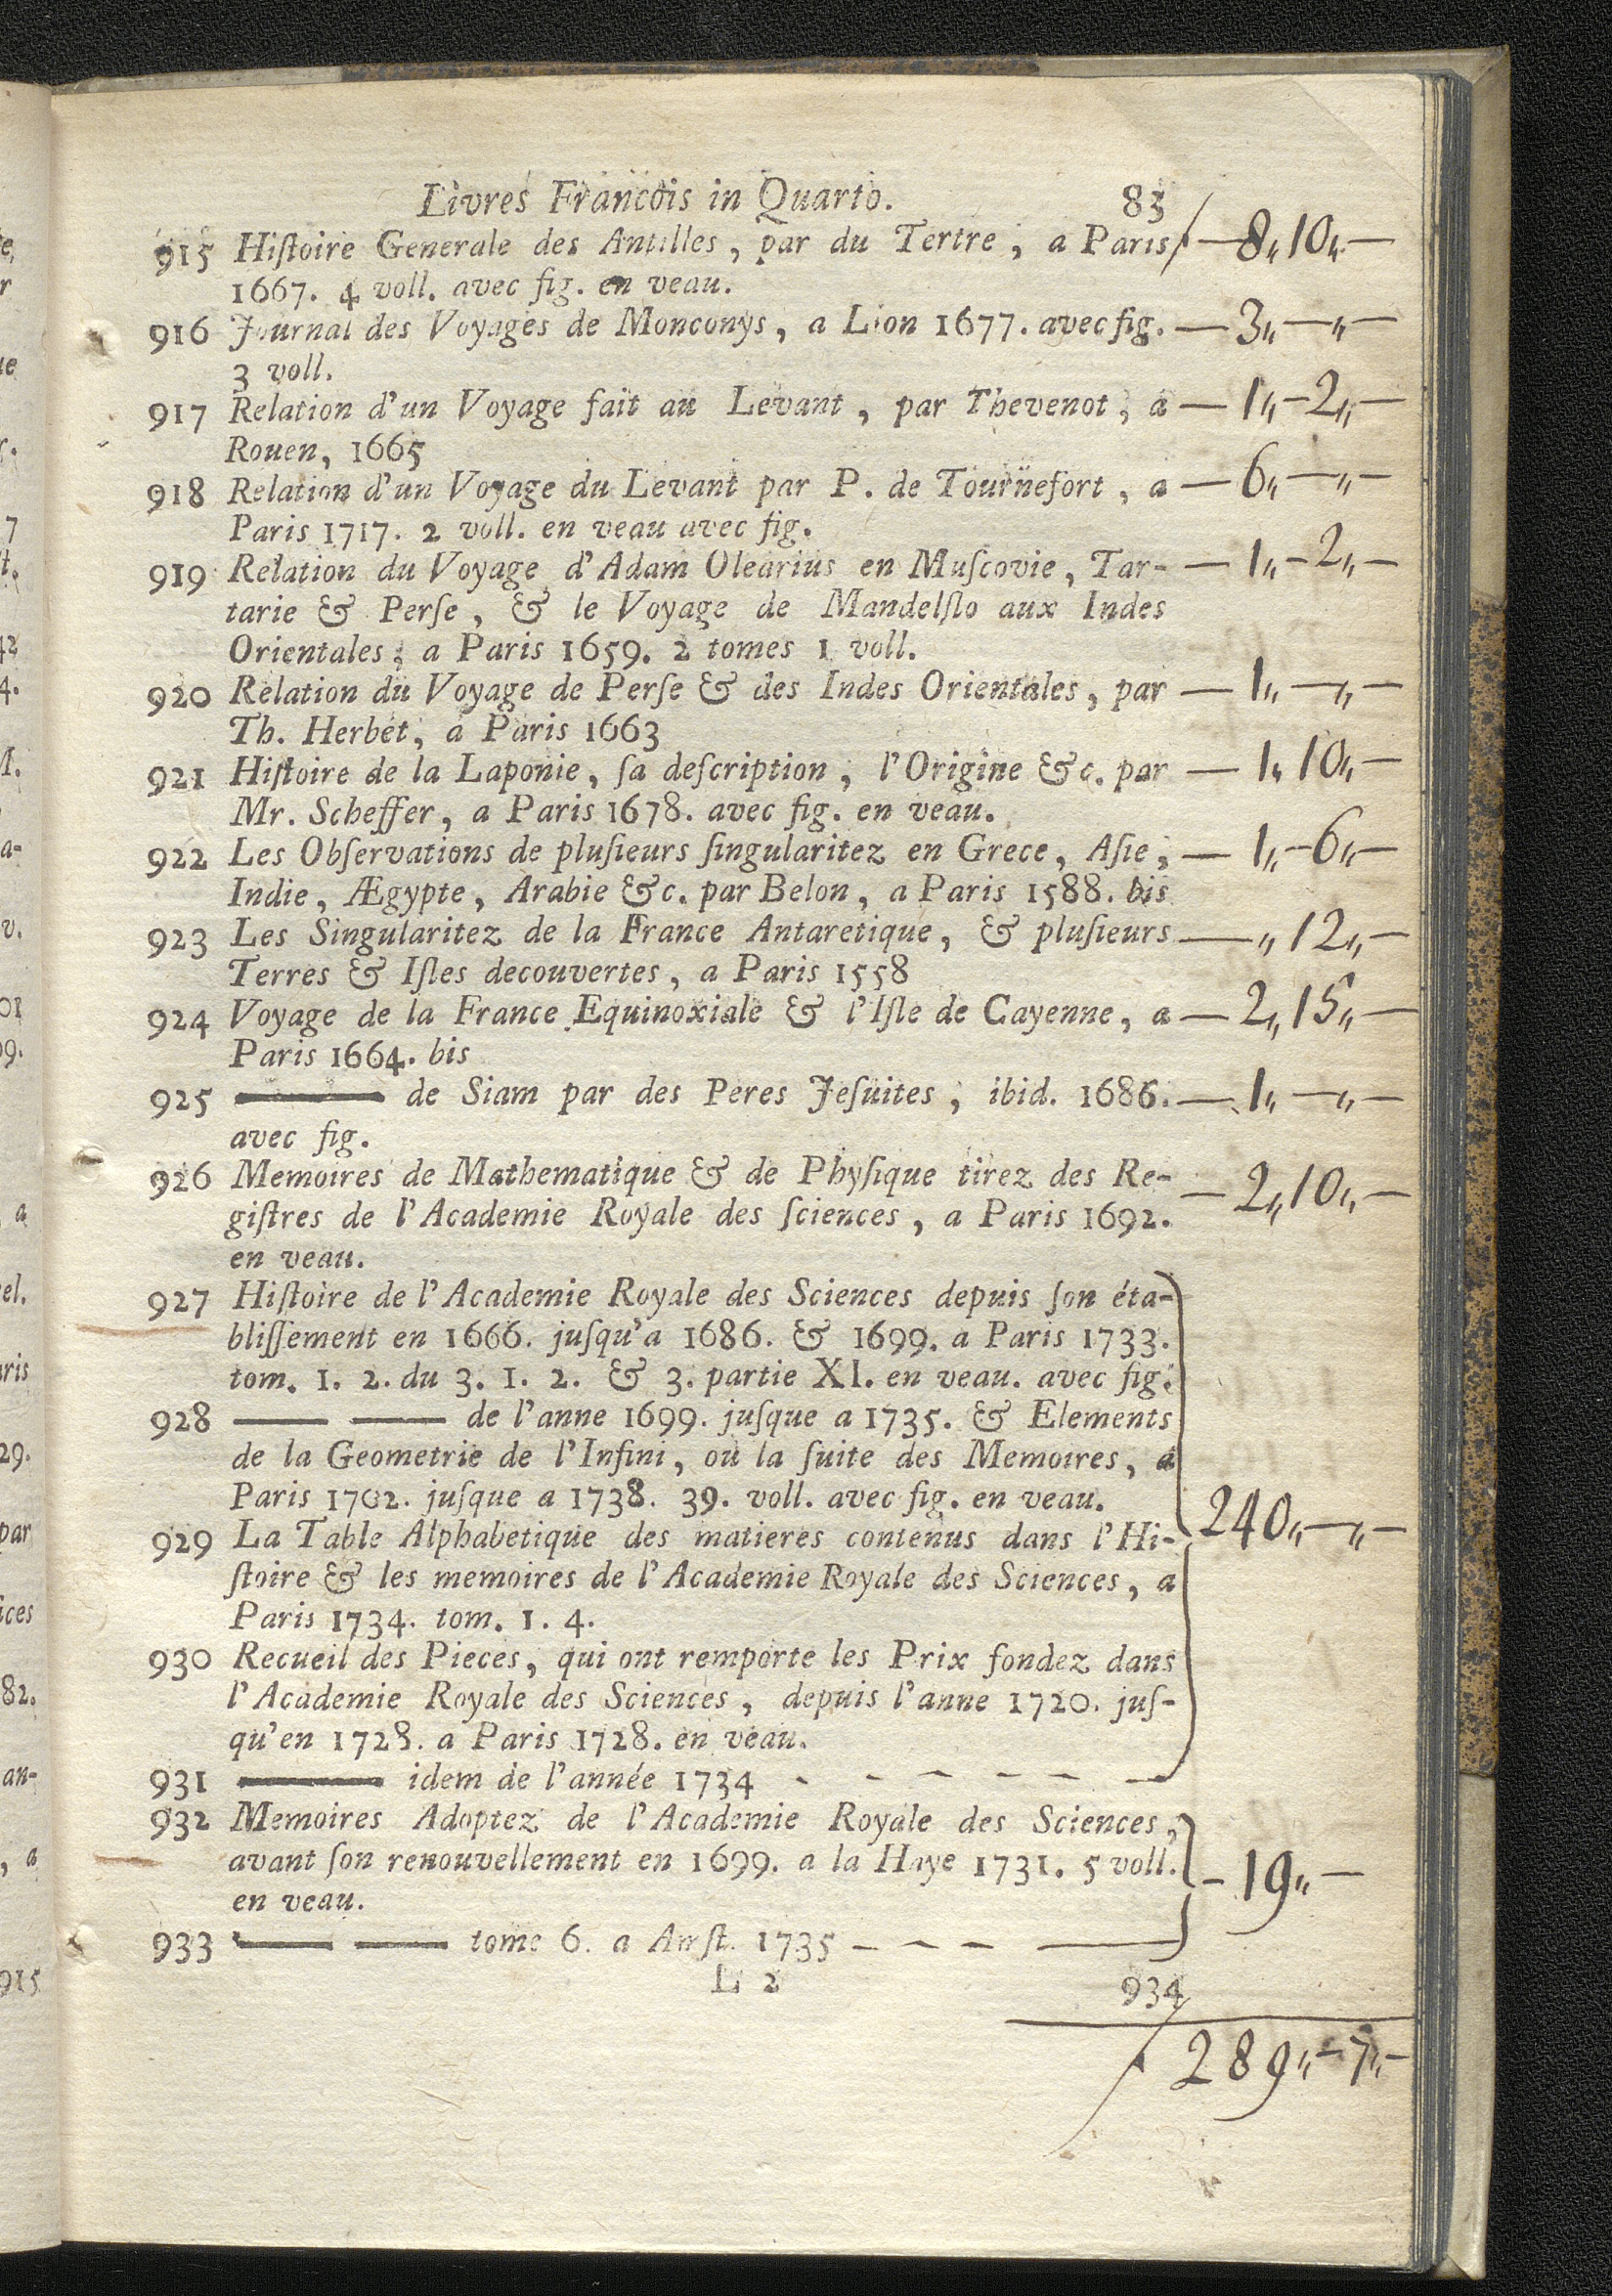 Livres Francois in Quarto. 83
915 Hiſtoire Generale des Antilles, par du Tertre, a Paris — 8„ 10„ —
1667. 4 voll. avec fig. en veau.
916 Journal des Voyages de Monconys, a Lion 1677. avec fig. — 3„ — „ —
3 voll.
917 Relation d'un Voyage fait au Levant, par Thevenot, a — 1„ - 2„ —
Rouen, 1665
918 Relation d'un Voyage du Levant par P. de Tournefort, a — 6„ — „ —
Paris 1717. 2 voll. en veau avec fig.
919 Relation du Voyage d'Adam Olearius en Muſcovie, Tar- — 1„ - 2„ —
tarie & Perſe, & le Voyage de Mandelſlo aux Indes
Orientales, a Paris 1659. 2 tomes 1 voll.
920 Relation du Voyage de Perſe & des Indes Orientales, par — 1„ — „ —
Th. Herbet, a Paris 1663
921 Hiſtoire de la Laponie, ſa deſcription, l'Origine &c. par — 1„ 10„ —
Mr. Scheffer, a Paris 1678. avec fig. en veau.
922 Les Obſervations de pluſieurs ſingularitez en Grece, Aſie, — 1„ - 6„ —
Indie, Ægypte, Arabie &c. par Belon, a Paris 1588. bis
923 Les Singularitez de la France Antaretique, & pluſieurs — „ 12„ —
Terres & Iſles decouvertes, a Paris 1558
924 Voyage de la France Equinoxiale & l'Iſle de Cayenne, a — 2„ 15„ —
Paris 1664. bis
925 ——— de Siam par des Peres Jeſuites, ibid. 1686. — 1„ — „ —
avec fig.
926 Memoires de Mathematique & de Phyſique tirez des Re- — 2„ 10„ —
giſtres de l'Academie Royale des ſciences, a Paris 1692.
en veau.
927 Hiſtoire de l'Academie Royale des Sciences depuis ſon éta-
bliſſement en 1666. juſqu'a 1686. & 1699. a Paris 1733.
tom. 1. 2. du 3. 1. 2. & 3. partie XI. en veau. avec fig.
928 —— —— de l'anne 1699. juſque a 1735. & Elements
de la Geometrie de l'Infini, ou la ſuite des Memoires, a
Paris 1702. juſque a 1738. 39. voll. avec fig. en veau.
240„ — „ —
929 La Table Alphabetique des matieres contenus dans l'Hi-
ſtoire & les memoires de l'Academie Royale des Sciences, a
Paris 1734. tom. 1. 4.
930 Recueil des Pieces, qui ont remporte les Prix fondez dans
l'Academie Royale des Sciences, depuis l'anne 1720. juſ-
qu'en 1728. a Paris 1728. en veau.
931 ——— idem de l'année 1734 - - - - - —
932 Memoires Adoptez de l'Academie Royale des Sciences,
avant ſon renouvellement en 1699. a la Haye 1731. 5 voll. - 19„ —
en veau.
933 —— —— tome 6. a Amſt. 1735 - - - —
L 2 934
289„ - 7„ —